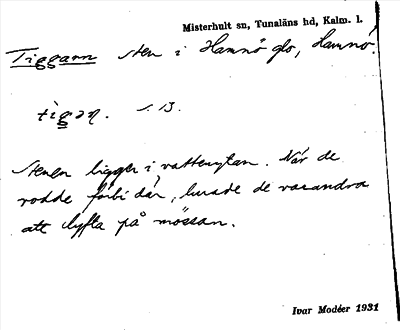 Misterhult sn, Tunaläns hd, Kalm. l.
Tiggarn sten i Hamnö glo, Hamnö.
tigaɲ. s. 13.
Stenen ligger i vattenytan. När de
rodde förbi där, lurade de varandra
att lyfta på mössan.
Ivar Modéer 1931